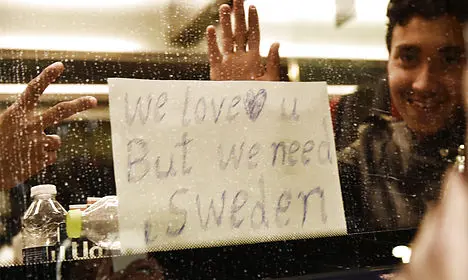 We love ♥ u
But we need
Sweden